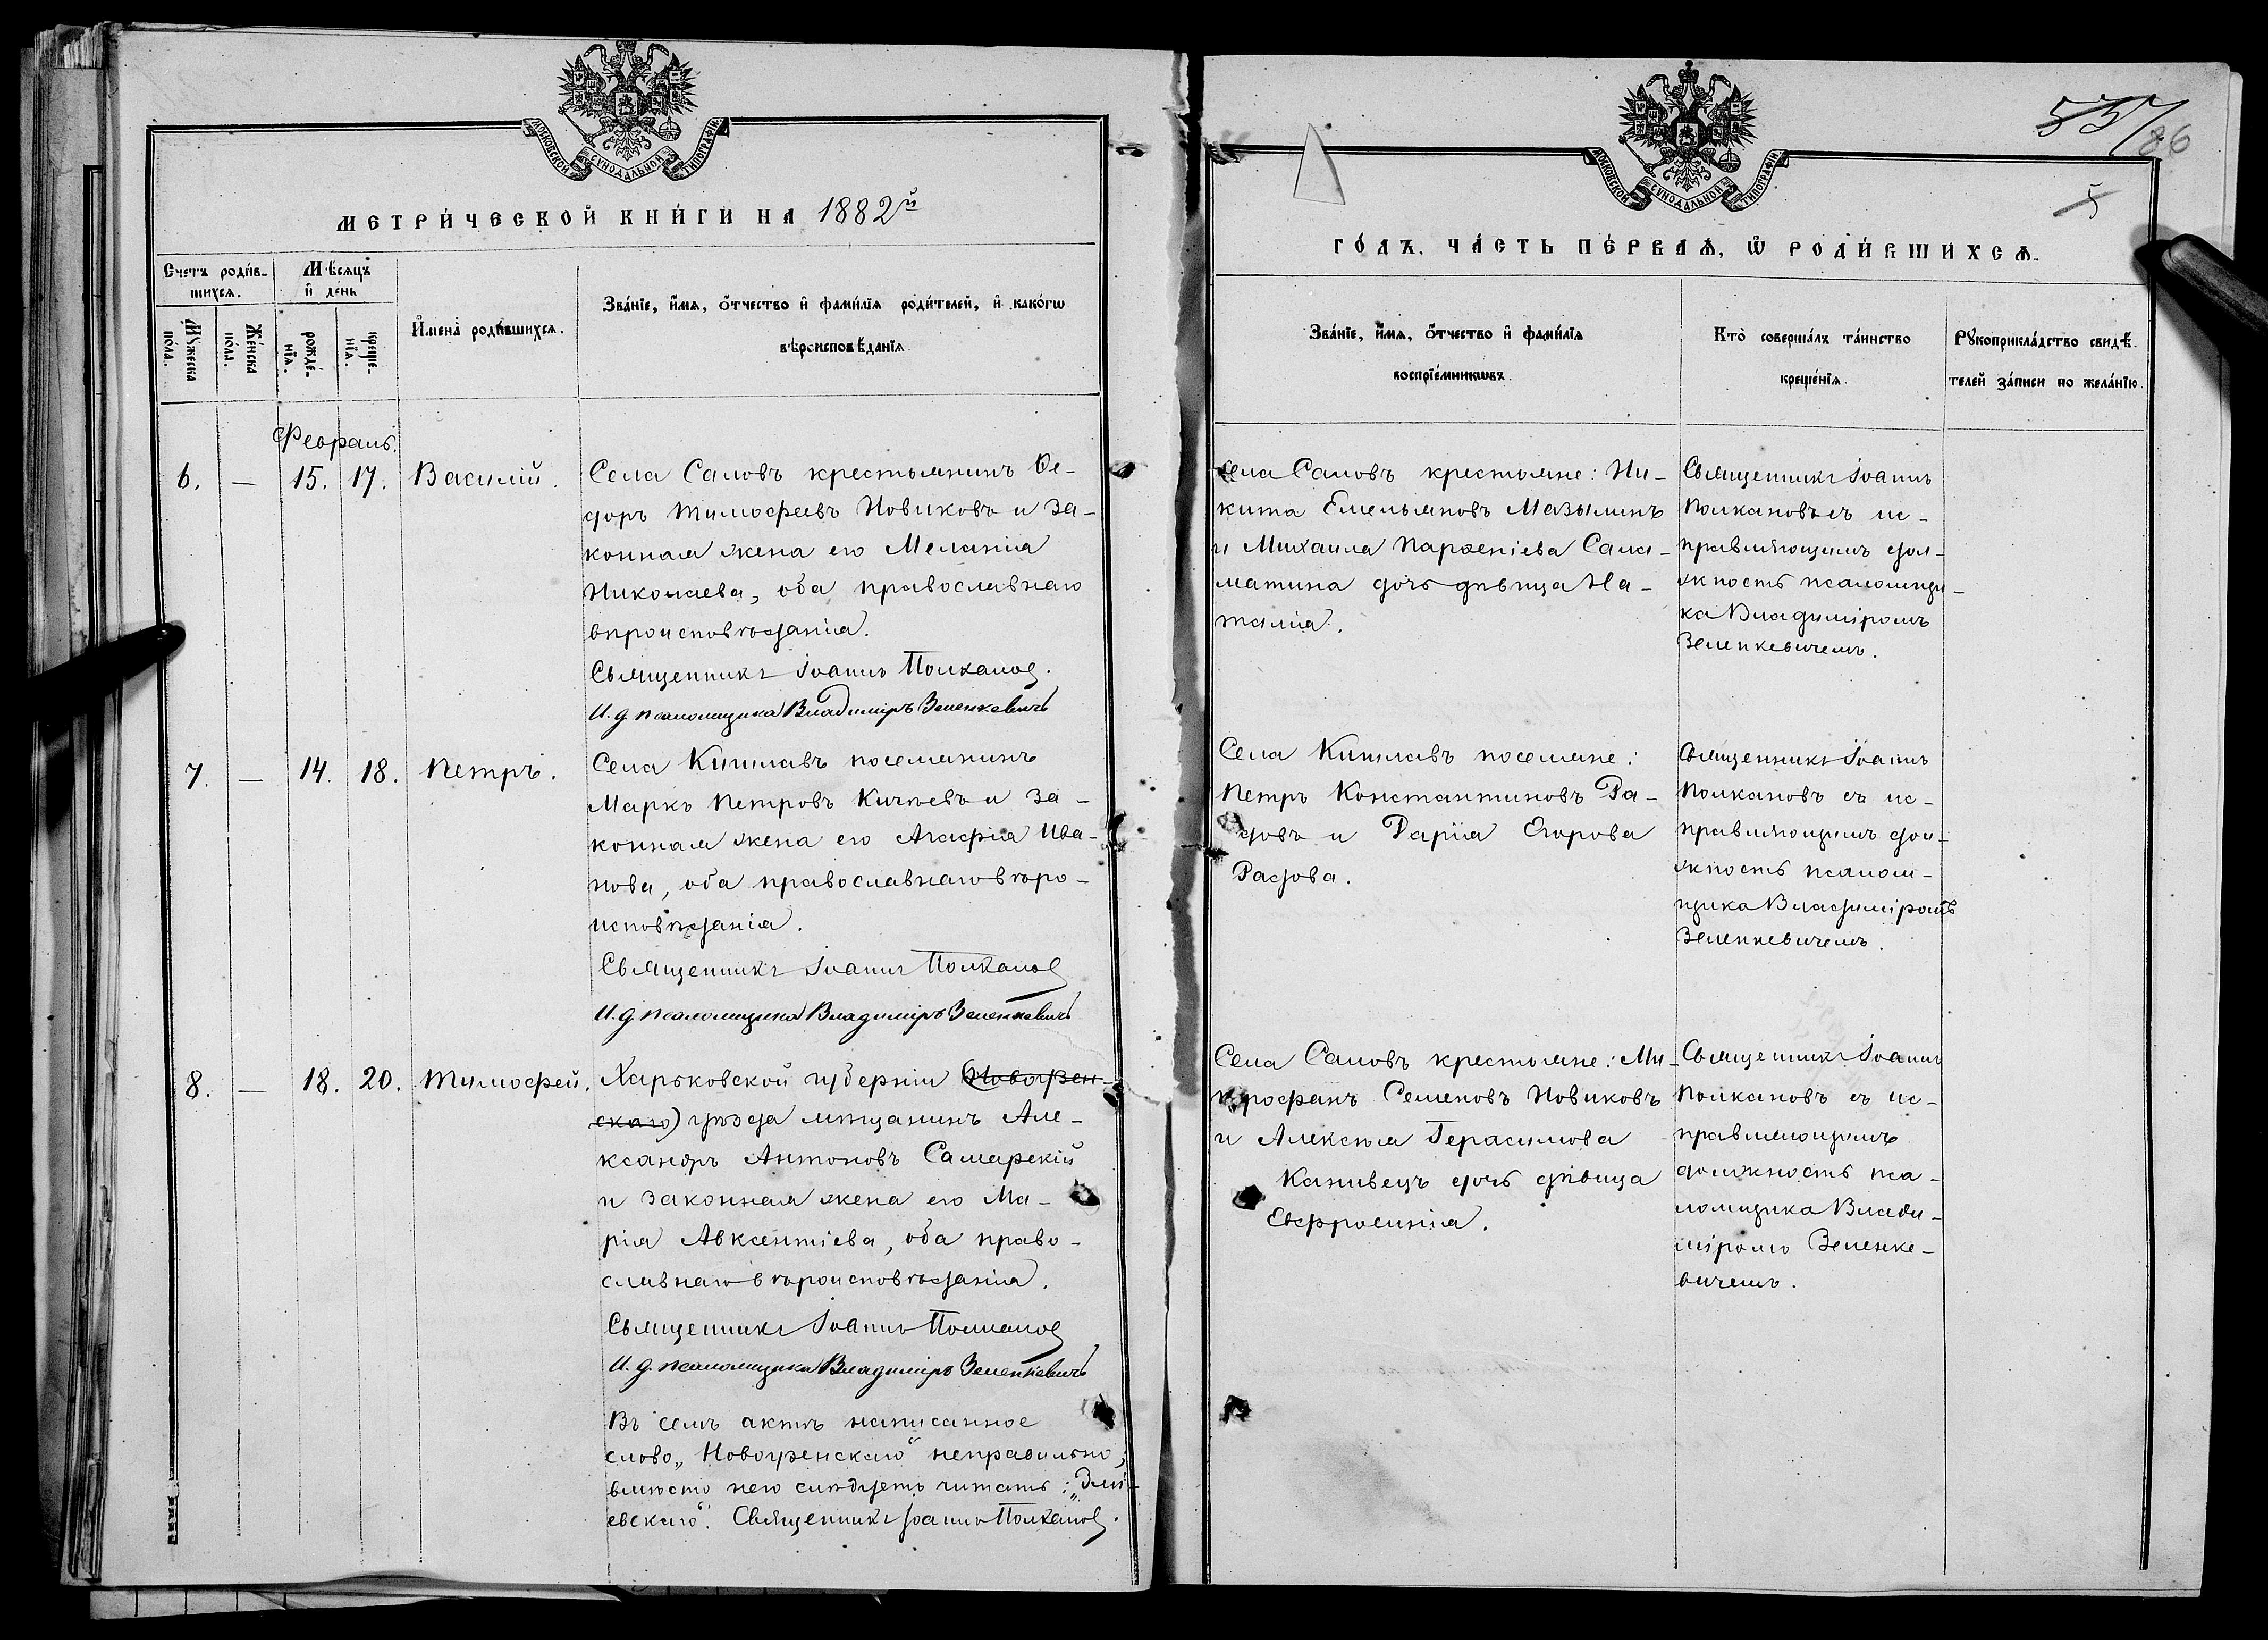 МОСКОВСКОЙ СѴНОДАЛЬНОЙ ТИПОГРАФІИ
МЕТРИ́ЧЕСКОЙ КНИ́ГИ НА 1882й
Счетъ роди́в-
шихся.
Мѣ́сяцъ
и҆ де́нь
Мꙋ́жеска
по́ла.
Же́нска
по́ла.
рожде́-
нїѧ.
креще́-
нїѧ.
И҆мена̀ роди́вшихсѧ.
Зва́нїе, и҆́мѧ, ѻ҆́тчество и҆ фами́лїѧ роди́телей, и҆ како́гѡ
вѣроисповѣ́данїѧ
Февраль.
6. — 15. 17. Василій.
Села Саловъ крестьянинъ Ѳе-
доръ Тимофеевъ Новиковъ и за-
конная жена его Меланія
Николаева, оба православнаго
вѣроисповѣданія.
Священникъ Іоаннъ Полканов.
И. д. псаломщика Владиміръ Зеленкевичъ
7. — 14. 18. Петръ.
Села Кишлавъ поселянинъ
Маркъ Петровъ Кичѣевъ и за-
конная жена его Агафія Ива-
нова, оба православнаго вѣро-
исповѣданія.
Священникъ Іоаннъ Полканов
И. д. псаломщика Владиміръ Зеленкевичъ
8. — 18. 20. Тимофей.
Харьковской губерніи (Новогрен-
скаго) уѣзда мѣщанинъ Але-
ксандръ Антоновъ Самарскій
и законная жена его Ма-
рія Авксентіева, оба право-
славнаго вѣроисповѣданія.
Священникъ Іоаннъ Полканов
И. д. псаломщика Владиміръ Зеленкевичъ
Въ семъ актѣ написанное
слово „Новогренскаго“ неправильно,
вмѣсто него слѣдуетъ читать: „Змі-
евскаго“. Священникъ Іоаннъ Полканов.
МОСКОВСКОЙ СѴНОДАЛЬНОЙ ТИПОГРАФІИ
86
5
ГО́ДЪ. ЧА́СТЬ ПЕ́РВАѦ, Ѡ҆ РОДИ́ВШИХСѦ.
Зва́нїе, и҆́мѧ, ѻ҆́тчество и҆ фами́лїѧ
воспрїе́мникѡвъ.
Кто̀ соверша́лъ та́инство
креще́нїѧ.
Рꙋкоприкла́дство свидѣ́-
телей за́писи по жела́нїю.
Села Саловъ крестьяне: Ни-
кита Емельяновъ Мазылинъ
и Михаила Парѳеніева Сала-
матина дочь дѣвица На-
талія.
Священникъ Іоаннъ
Полкановъ съ ис-
правляющимъ дол-
жность псаломщи-
ка Владиміромъ
Зеленкевичемъ.
Села Кишлавъ поселяне:
Петръ Константиновъ Ра-
довъ и Дарія Егорова
Радова.
Священникъ Іоаннъ
Полкановъ съ ис-
правляющимъ дол-
жность псалом-
щика Владиміромъ
Зеленкевичемъ.
Села Саловъ крестьяне: Ми-
трофанъ Семеновъ Новиковъ
и Алексѣя Герасимова
Канивецъ дочь дѣвица
Евфросинія.
Священникъ Іоаннъ
Полкановъ съ ис-
правляющимъ
должность пса-
ломщика Влади-
міромъ Зеленке-
вичемъ.